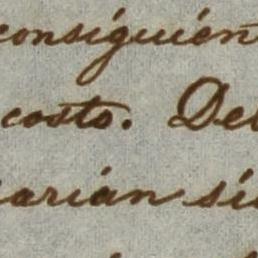 consiguien
costo. Del
arian si